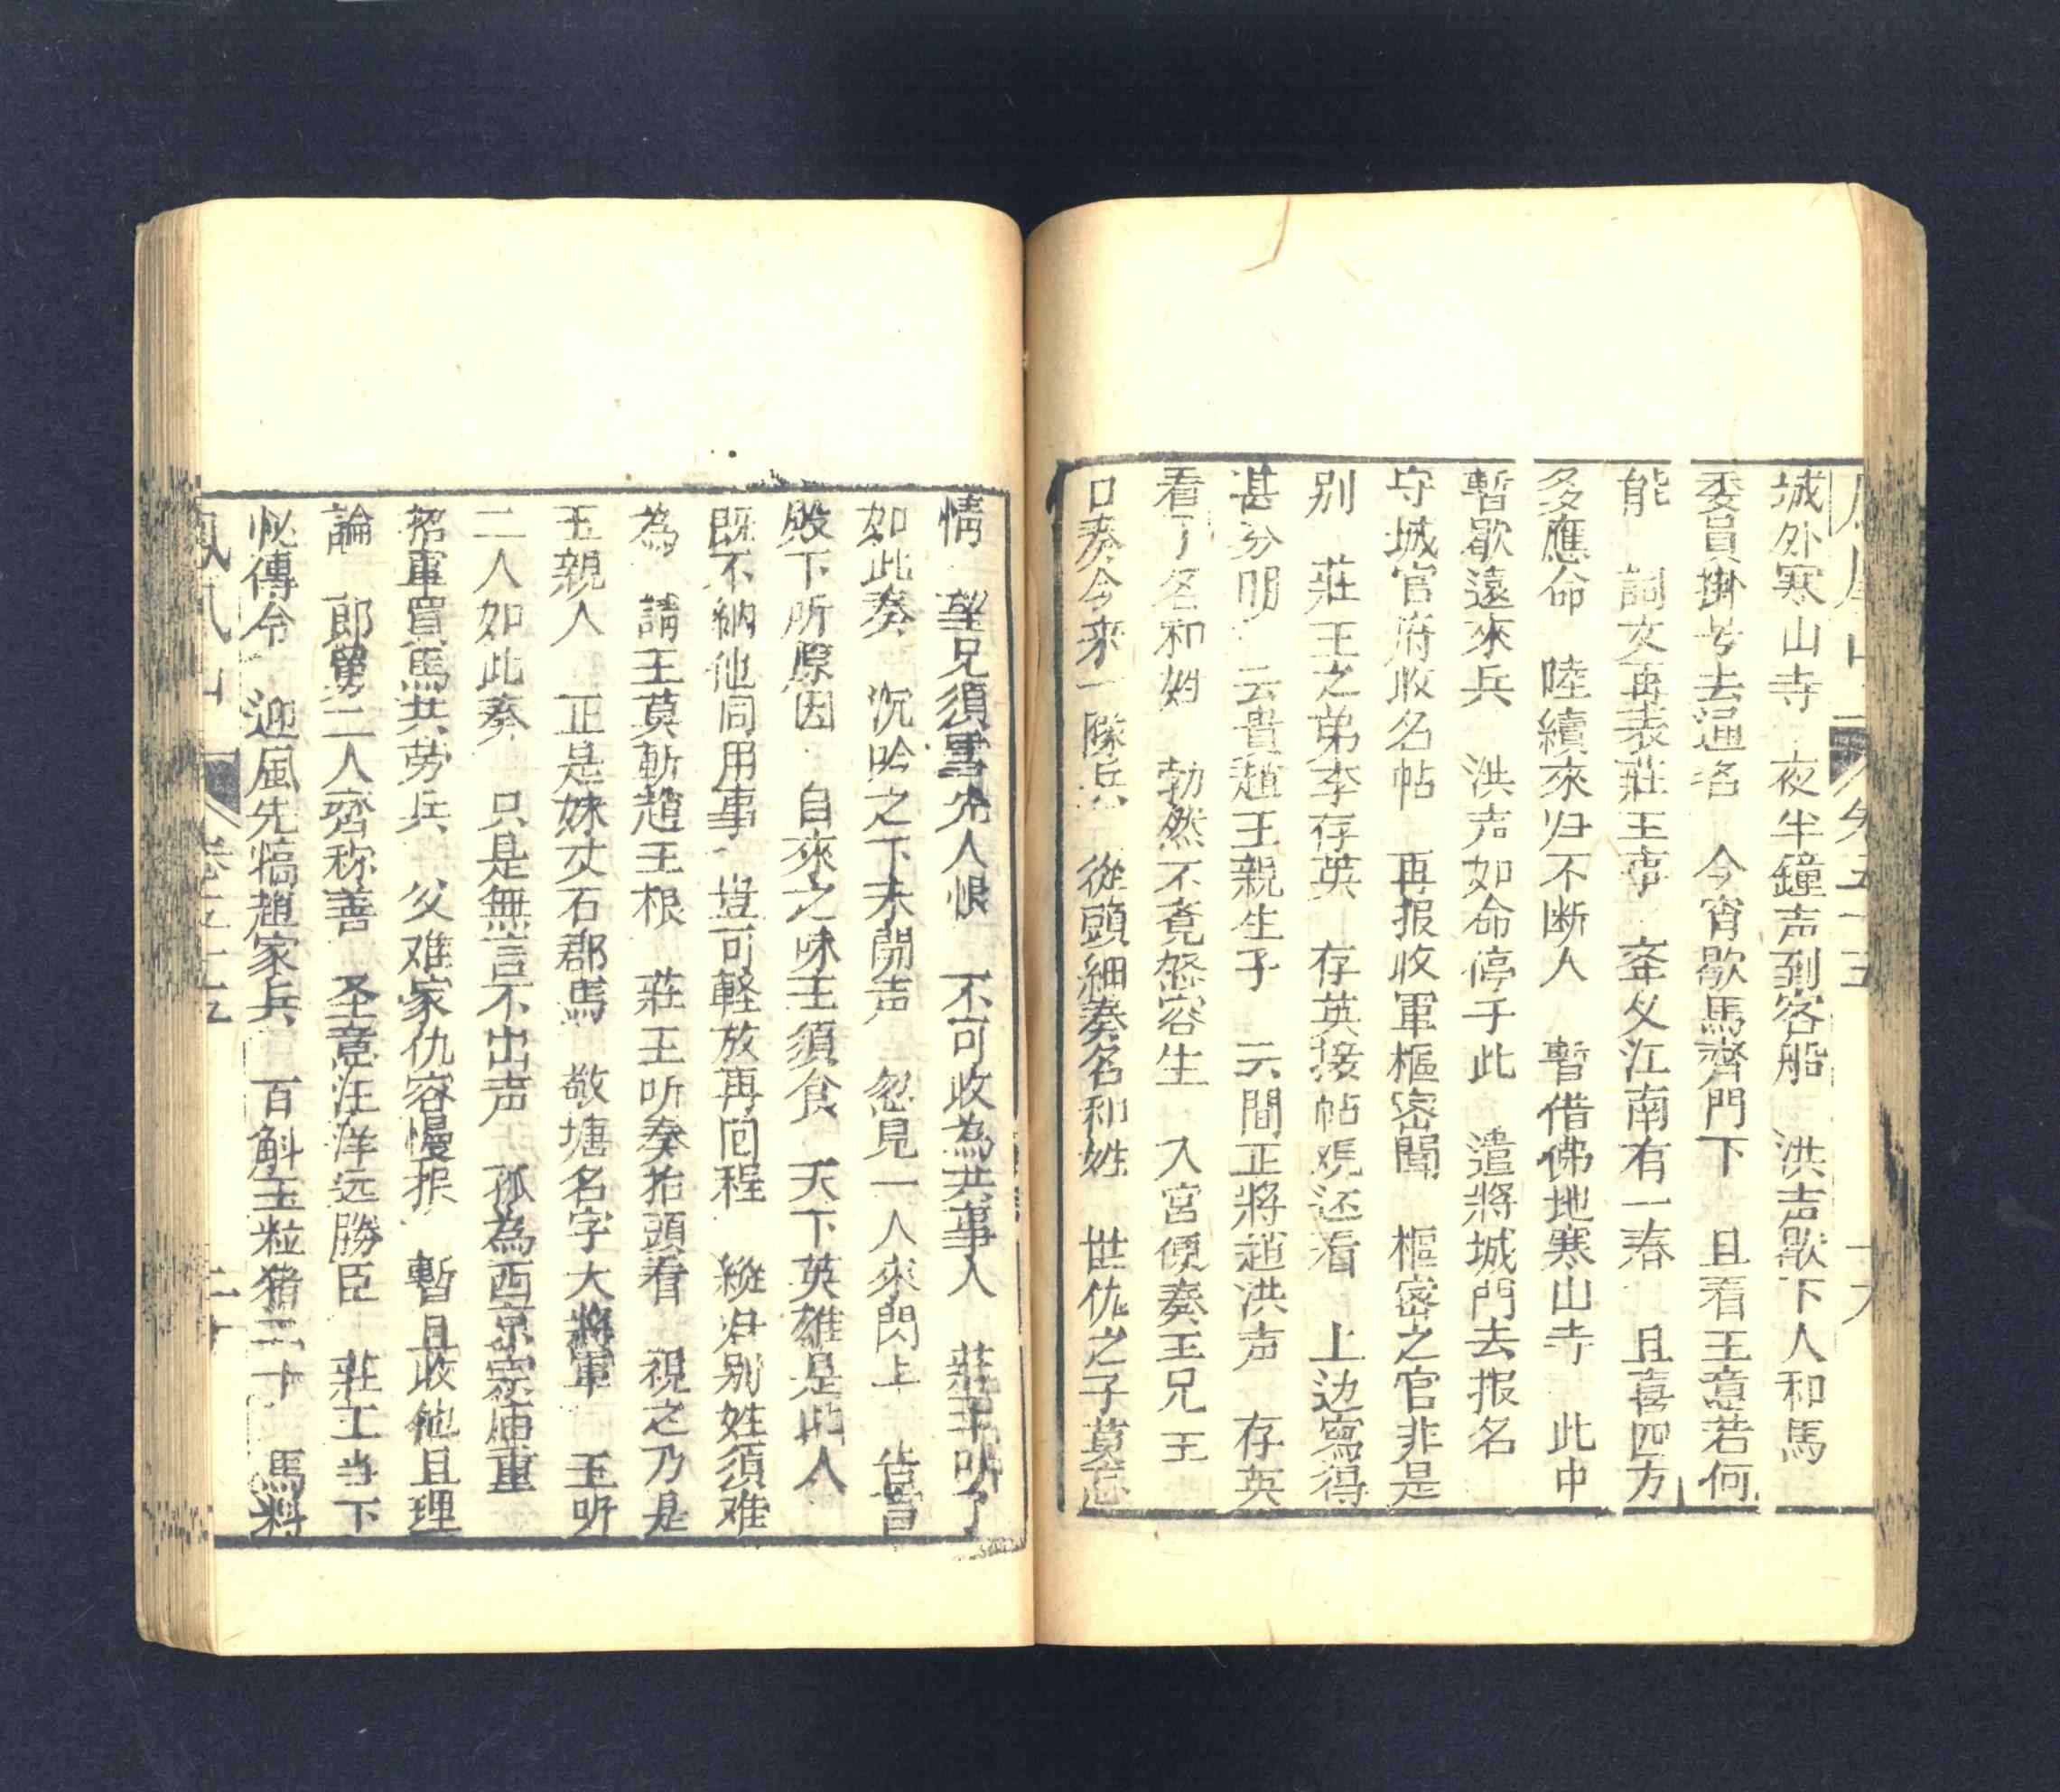 城外寒山寺　夜半鐘声到客船　洪声歇下人和馬
委員掛号去逼名　今宵歇馬齊門下　且看王意若何
能　詞文再表莊王事　牽父江南有一春　且喜四方
多應命　陸續來归不断人　暫借佛地寒山寺　此中
暫歇遠來兵　洪声如命停于此　遣將城門去报名
守城官府收名帖　再报收軍樞密聞　樞密之官非是
别　莊王之弟李存英　存英接帖观还看　上边寫得
甚分明　云貴趙王親生子　云間正將趙洪声　存英
看了名和姓　勃然不覚怒容生　入宮便奏王兄王
口奏今来一隊兵　從頭細奏名和姓　世仇之子莫忘
情　望兄須雪先人恨　不可收為共事人　莊王听了
如此奏　沉吟之下未開声　忽見一人來閃上　皆言
殿下听原因　自來之味王須食　天下英雄是此人
既不納他同用事　豈可軽放再囘程　縦归别姓須难
為　請王莫斬趙王根　莊王听奏抬頭看　視之乃是
王親人　正是妹丈石郡馬　敬塘名字大將軍　王听
二人如此奏　只是無言不出声　孤為西京宗庙重
招軍買馬共劳兵　父难家仇容慢报　暫且收他且理
論　郎舅二人齊称善　圣意汪洋远勝臣　莊王当下
忙傳令　迎風先犒趙家兵　百斛玉粒猪三十　馬料
鳳凰山　卷五十五　二十